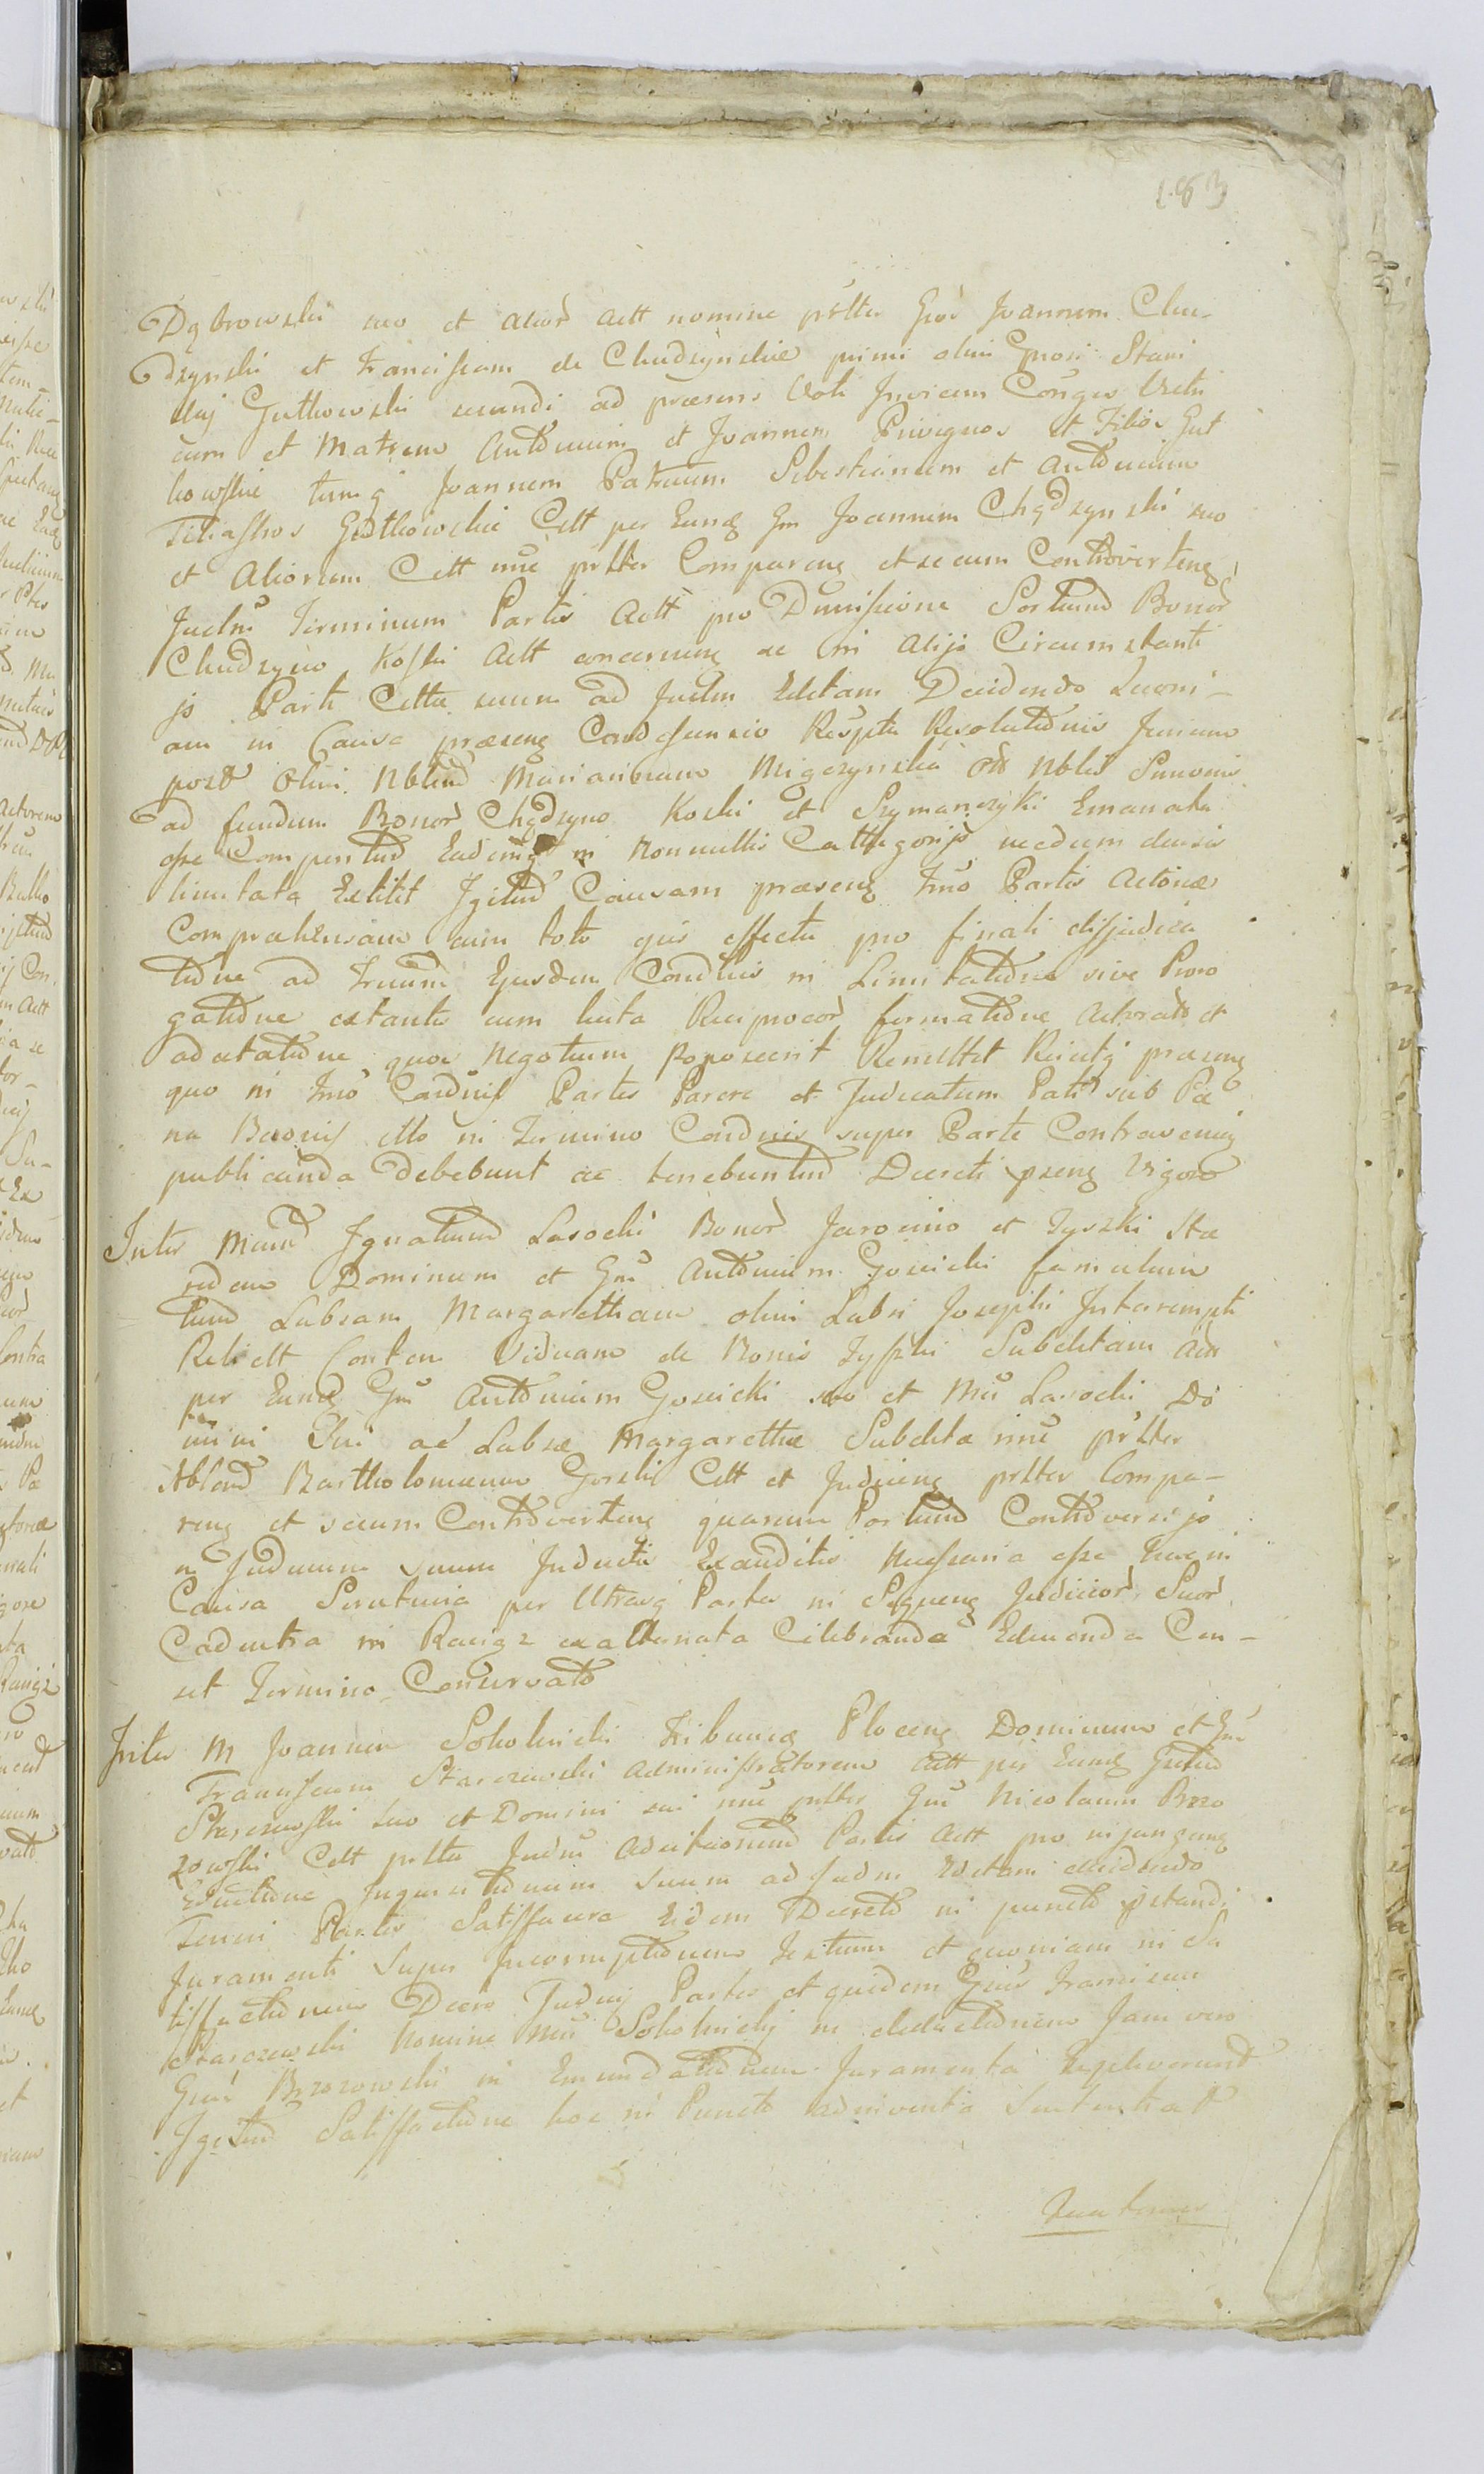 Dąbrowski suo et alior Actt nomine psttm Gsos Joannem Chu-
dzynski et Franciscam de Chudzynskie primi olim Gnosi Stani
slaj Gutkowski secundi ad præsens Voti Invicem Conges Vitri
cum et Matrem Antonium et Joannem Privignos et Filios Gut
kowskie tumq Joannem Patruum Sebestianum et Antonium
Filiastros Gutkowskie Citt per Eunq Gm Joannem Chądzynski suo
et Aliorum Citt nne psttes Compareng et secum Controverteng
Judm Terminum Partis Actt pro Dimissione Sortium Bonor
Chudzyno Koski Actt concerneng ac in alijs Circumstanti
js Parti Citta suum ad Judm Editam Decidendo Quoni-
am in Causa præseng Condescensio Respta Resolutionis Jurium
post olim Nblem Mariannam Migczynska
ad fundum Bonor Chądzyno Koski et Szymanczyki Emanata
esse Comperitur Eademq in Nonnullis Cathegorijs necdum decisis
limitata Extitit Igitur Causam præseng Irno Partis Actoreæ
Compræhensam cum toto ejus effectu pro finali disjudica
tione ad Irnum Ejusdem Condnis in Limitatione sive Proro
gatione extante cum Reciprocar firmatione Actorato et
adcitatione quos Negotium Poposcerit Remittit Reictq præseng
quo in Irno Condnis Partes Parere et Judicatum Pati sub Pæ
na Baonis illo in Termino Condnis super Parte Contraveniq
publicanda debebunt ac tenebuntur Decreti pseng Vigore
Inter Mcum Ignatium Lasocki Bonor Jarocino et Tyszki Hæ
redem Dominum et Gm Antonium Gosicki famulum
tum Labsam Margaretham olim Labsi Josephi Interempti
Relictt Contem Viduam de Bonis Tyszki Subditam Actt
per Eunq Gm Antonium Gosicki suo et Mci Lasocki Do
mini Sui ac Labsæ Margarethæ Subditæ nne psttes
Nblem Bartholomæum Gorski Citt et Judicieng psttes Compa-
reng et secum Controverteng quarum Partium Controversijs
in Judicium suum Inductis Exauditis Necessaria esse hac in
Causa Scrutinia per Utramq Partes in Sequeng Judicior Suor
Cadentia in Raciąż ex alternata Celebranda Educenda Cen-
set Termino Conservato
Inter M Joannem Sokolnicki Tribunq Ploceng Dominum et Gm
Franciscum Starczewski Administratorem Actt per Eunq Gnrum
Starczewski suo et Domini sui nne psttes Gm Nicolaum Brzo
zowski Citt psttes Judm Adcitaonem Partis Actt pro injungeng
Executione Inquisitionum suum ad Judm Editam decidendo
Teneri Partes Satisfacere Eidem Decreto in puncto pstandi
Juramenti Super Incorruptionem Testium et quoniam in Sa
tisfactionem Decre Judij Partes et quidem Gsus Franciscus
Starczewski Nomine Mci Sokolnickij in deductionem Jam vero
Gsus Brzozowski in Emundationem Juramenta Expleverunt
Igitur Satisfactione hoc in Puncto adinventa Sententiat
Quatenus